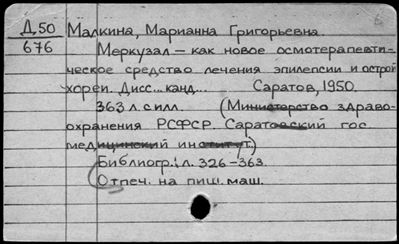 Д.50 Малкина, Марианна Григорьевна.
676 Меркузал — как новое осмотерапевти-
ческое средство лечения эпилепсии и острой
хореи. Дисс... канд... Саратов, 1950.
363 л. с илл. (Министерство здраво-
охранения РСФСР. Саратовский гос
медицинский институт.)
Библиогр.: л. 326-363.
Отпеч. на пиш. маш.